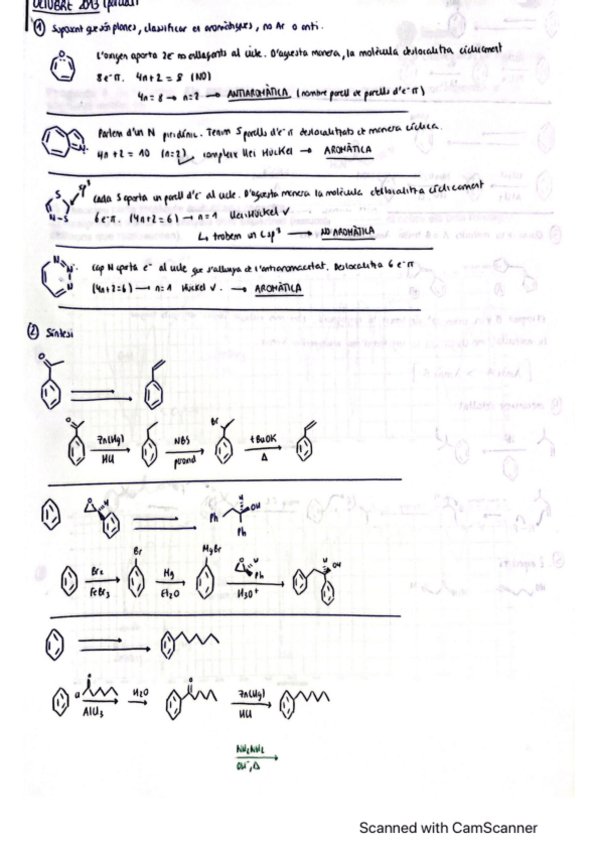 OCTUBRE 2013 (parcial)
① Suposant que són planes, classificar en aromàtiques, no Ar o anti.
L'oxigen aporta 2e⁻ no enllaçants al cicle. D'aquesta manera, la molècula deslocalitza cíclicament
8 e⁻ π. 4n+2 = 8 (NO)
4n = 8 → n=2 → ANTIAROMÀTICA (nombre parell de parells d'e⁻ π)
Parlem d'un N piridínic. Tenim 5 parells d'e⁻ π deslocalitzats de manera cíclica.
4n+2 = 10 (n=2) compleix llei Hückel → AROMÀTICA
S sp³
N-S
cada S aporta un parell d'e⁻ al cicle. D'aquesta manera la molècula deslocalitza cíclicament
6 e⁻ π. (4n+2=6) → n=1 Llei Hückel ✓
↳ trobem un C sp³ → NO AROMÀTICA
N N
N
cap N aporta e⁻ al cicle Deslocalitza 6 e⁻ π
(4n+2=6) → n=1 Hückel ✓. → AROMÀTICA
② Síntesi
O
O Zn(Hg) NBS Br tBuOK
HCl Δ
O H Ph OH
Ph
Br MgBr
Br₂ Mg O H Ph OH
FeBr₃ Et₂O H₃O⁺
Cl H₂O O Zn(Hg)
AlCl₃ HCl
NH₂NH₂
OH⁻, Δ
Scanned with CamScanner